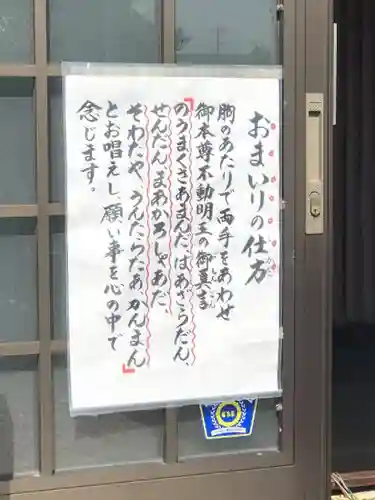 おまいりの仕方
かた
胸のあたりで両手をあわせ
御本尊不動明王の御真言
しんごん
「のうまくさあまんだ、ばあざらだん、
せんだん、まあかろしゃあだ、
そわたや、うんたらたあ、かんまん」
とお唱えし、願い事を心の中で
念じます。